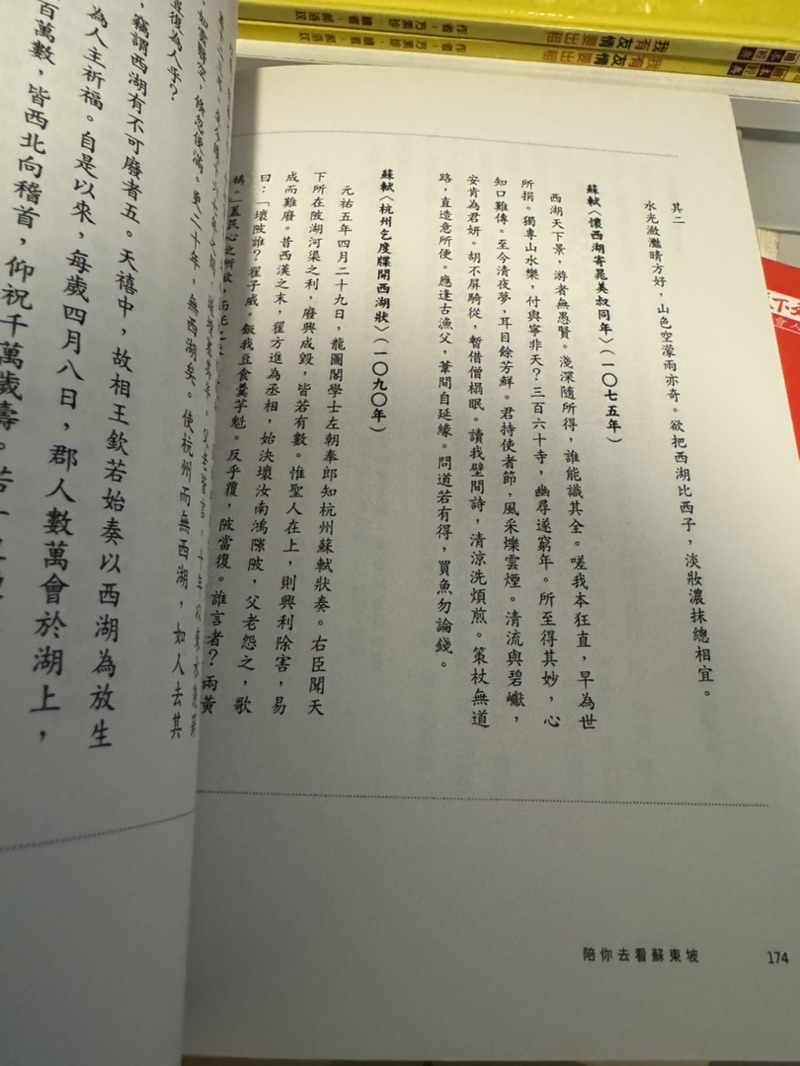 其二
水光瀲灩晴方好，山色空濛雨亦奇。欲把西湖比西子，淡妝濃抹總相宜。
蘇軾〈懷西湖寄晁美叔同年〉（一〇七五年）
西湖天下景，游者無愚賢。淺深隨所得，誰能識其全。嗟我本狂直，早為世
所捐。獨專山水樂，付與寧非天？三百六十寺，幽尋遂窮年。所至得其妙，心
知口難傳。至今清夜夢，耳目餘芳鮮。君持使者節，風采爍雲煙。清流與碧巘，
安肯為君妍。胡不屏騎從，暫借僧榻眠。讀我壁間詩，清涼洗煩煎。策杖無道
路，直造意所便。應逢古漁父，葦間自延緣。問道若有得，買魚勿論錢。
蘇軾〈杭州乞度牒開西湖狀〉（一〇九〇年）
元祐五年四月二十九日，龍圖閣學士左朝奉郎知杭州蘇軾狀奏。右臣聞天
下所在陂湖河渠之利，廢興成毀，皆若有數。惟聖人在上，則興利除害，易
成而難廢。昔西漢之末，翟方進為丞相，始決壞汝南鴻隙陂，父老怨之，歌
曰：「壞陂誰？翟子威。飯我豆食羹芋魁。反乎覆，陂當復。誰言者？兩黃
陪你去看蘇東坡
174
更二十年，無西湖矣。使杭州而無西湖，如人去其
復為人乎？
竊謂西湖有不可廢者五。天禧中，故相王欽若始奏以西湖為放生
為人主祈福。自是以來，每歲四月八日，郡人數萬會於湖上，
百萬數，皆西北向稽首，仰祝千萬歲壽。
我有友情要出租
我有友情要出租